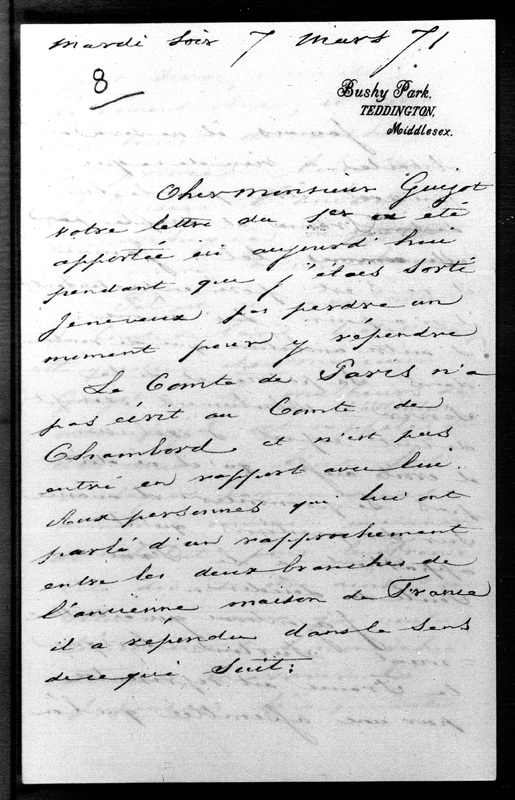 mardi soir 7 mars 71
8
Bushy Park,
TEDDINGTON,
Middlesex.
Cher monsieur Guizot
votre lettre du 1er a été
apportée ici aujourd'hui
pendant que j'étais sorti
Je ne veux pas perdre un
moment pour y répondre
Le Comte de Paris n'a
pas écrit au Comte de
Chambord et n'est pas
entré en rapport avec lui.
Aux personnes qui lui ont
parlé d'un rapprochement
entre les deux branches de
l'ancienne maison de France
il a répondu dans le sens
de ce qui suit: